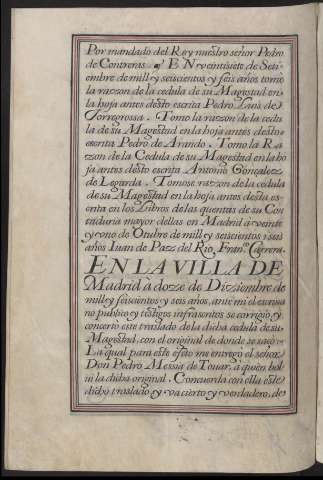 Por mandado del Rey nuestro señor Pedro
de Contreras. EN veintisiete de Seti-
embre de mill y seiscientos y seis años tome
la razon de la cedula de su Magestad en
la hoja antes desto escrita Pedro Luis de
Torregrossa. Tomo la razon de la cedu
la de su Magestad en la hoja antes desto
escrita Pedro de Arando. Tomo la Ra
zon de la Cedula de su Magestad en la ho
ja antes desto escrita Antonio Gonçalez
de Legarda. Tomose razon de la cedula
de su Magestad en la hoja antes desta es-
crita en los Libros de las quentas de su Con
taduria mayor dellas en Madrid à veinte
y uno de Otubre de mill y seiscientos i seis
años Iuan de Paz del Rio, Fran.co Cabrera.
EN LA VILLA DE
Madrid à doze de Diziembre de
mill y seiscientos y seis años, ante mi el escriua
no publico y testigos infrascritos se corrigio, y
concerto este traslado de la dicha cedula de su
Magestad, con el original de donde se saco
La qual para este efeto me entrego el señor
Don Pedro Messia de Touar, à quien bol
ui la dicha original. Concuerda con ella este
dicho traslado y va cierto y verdadero, de